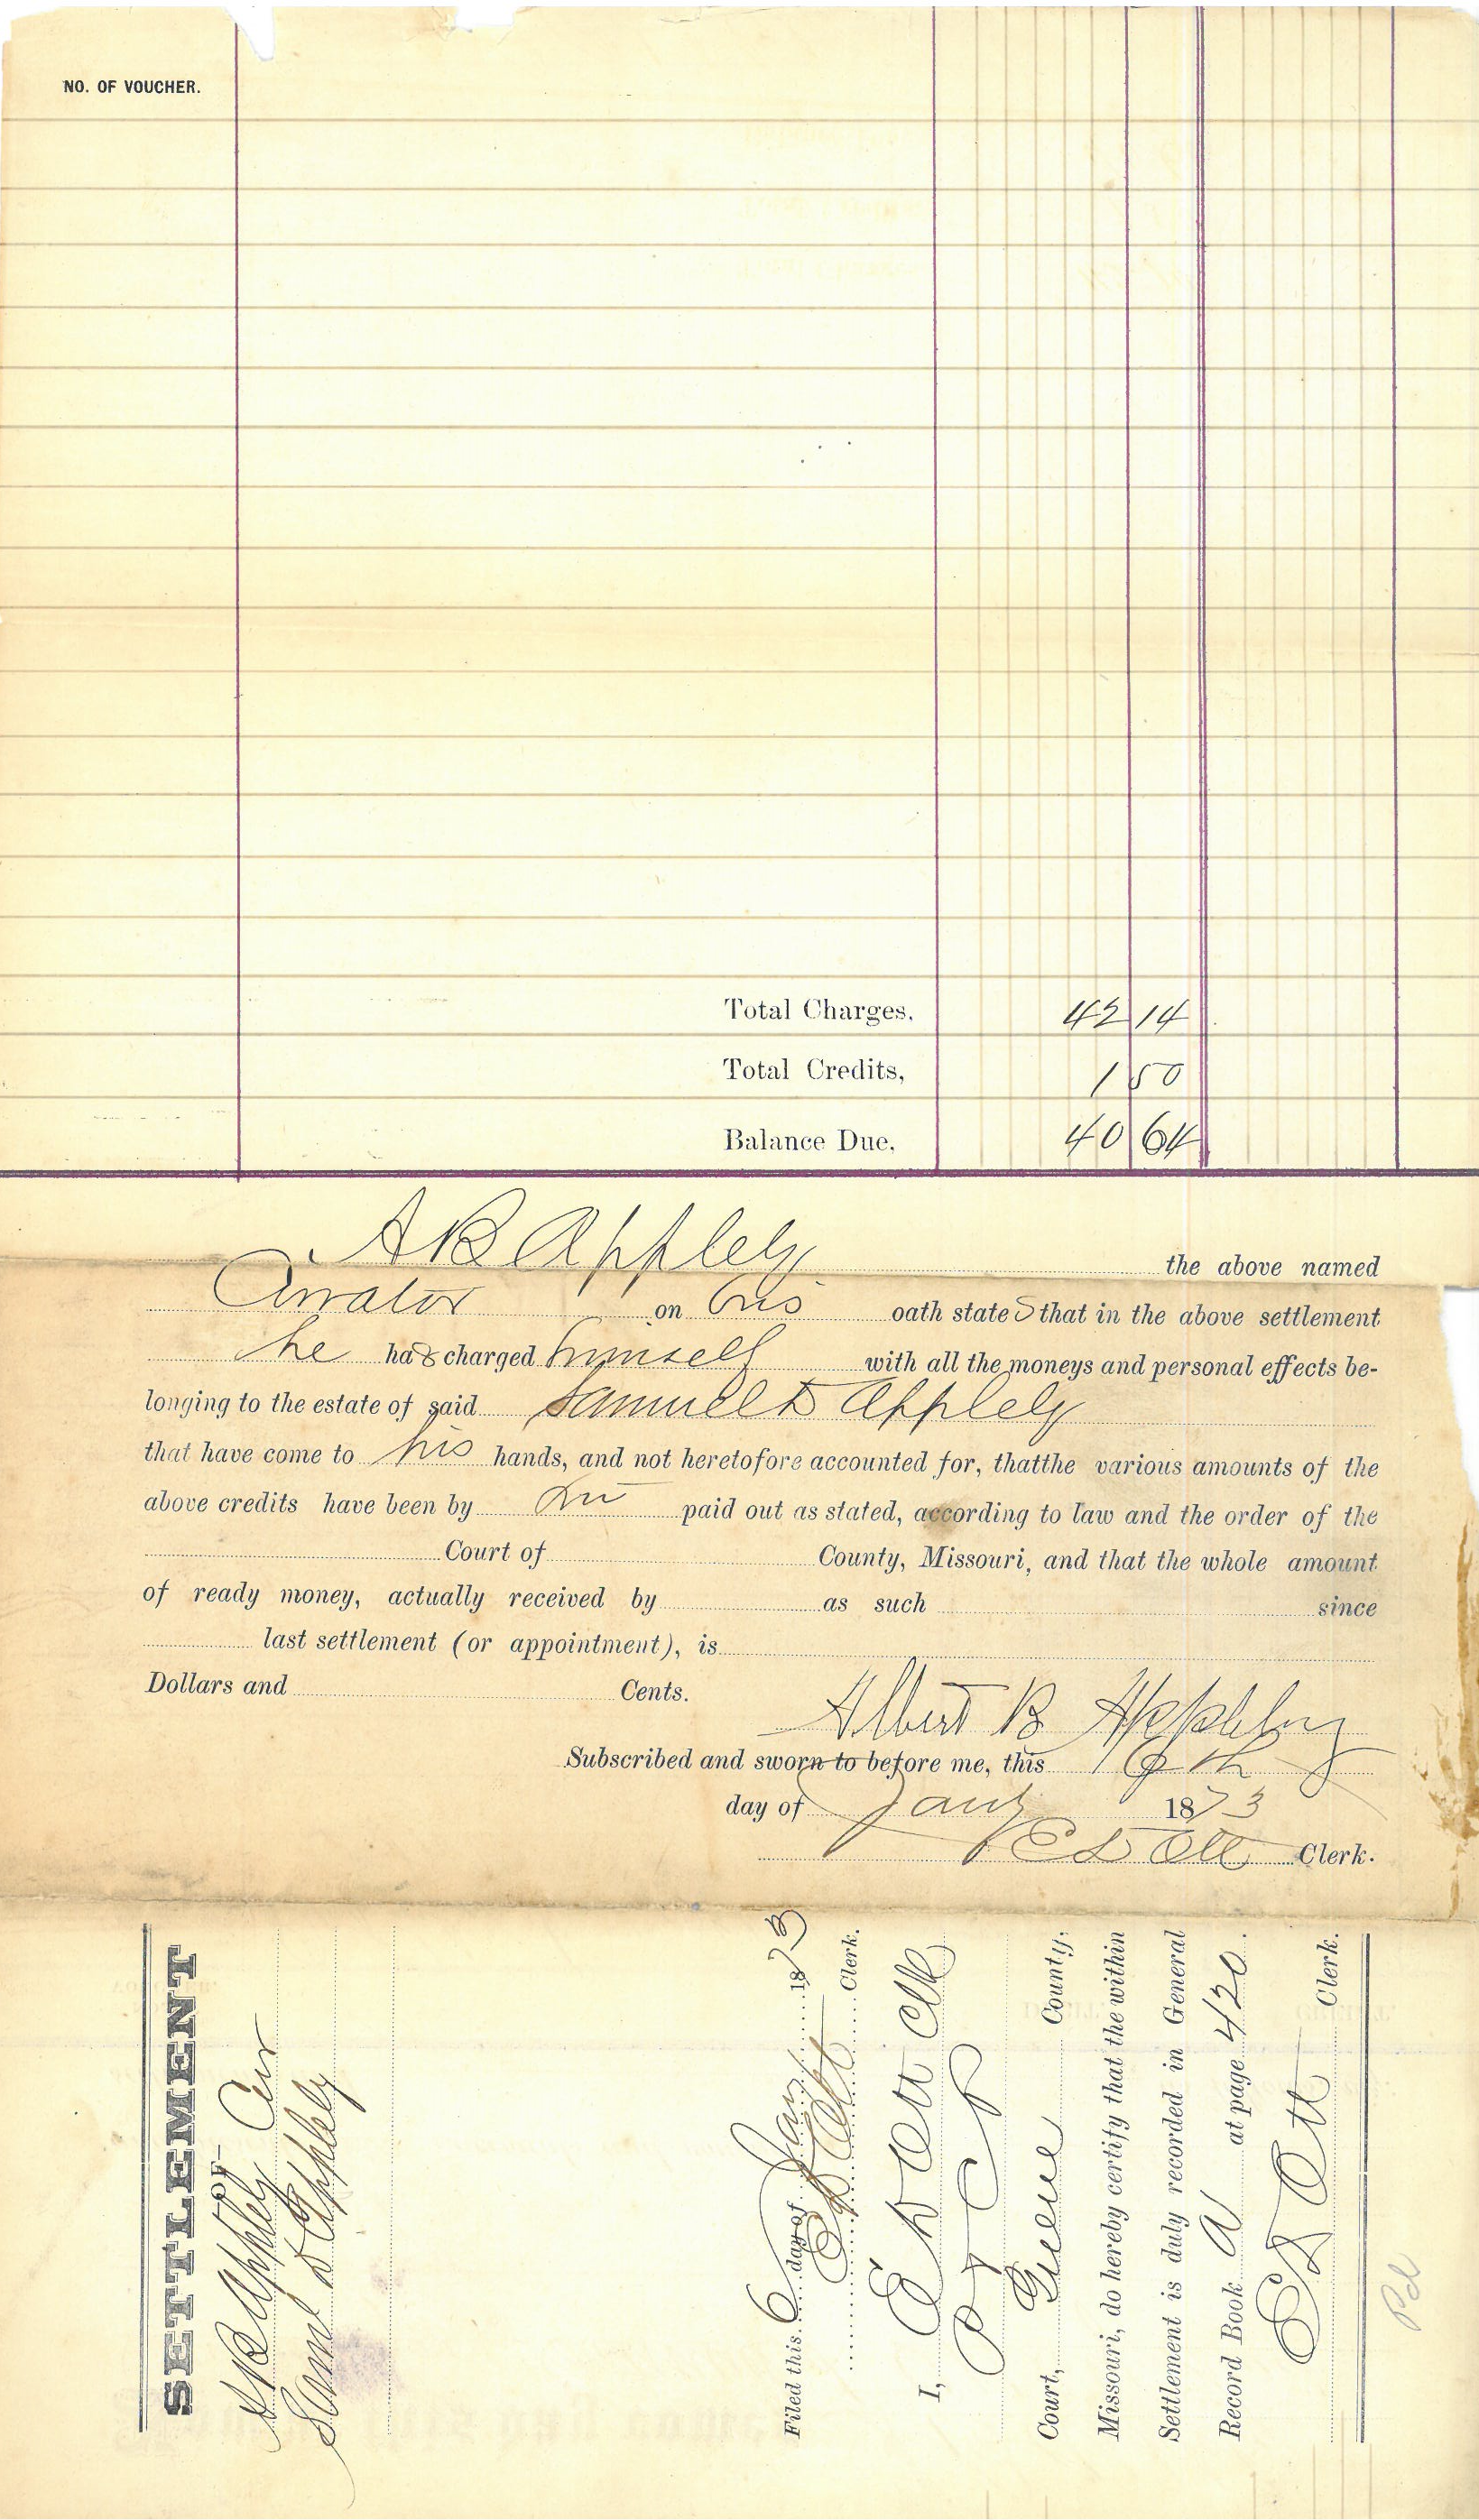 NO. OF VOUCHER.
Total Charges, 42 14
Total Credits, 1 50
Balance Due, 40 64
A B Appleby the above named
Curator on his oath states that in the above settlement
he has charged himself with all the moneys and personal effects be-
longing to the estate of said Samuel D Appleby
that have come to his hands, and not heretofore accounted for, thatthe various amounts of the
above credits have been by paid out as stated, according to law and the order of the
Court of County, Missouri, and that the whole amount
of ready money, actually received by as such since
last settlement (or appointment), is
Dollars and Cents.
Albert B Appleby
Subscribed and sworn to before me, this 16th
day of Jany 1873
E D Ott Clerk.
SETTLEMENT
OF
A B Appleby Cur
Saml D Appleby
Filed this 6 day of Jany 1873
E D Ott Clerk.
I, E D Ott Clk
Court, Greene County,
Missouri, do hereby certify that the within
Settlement is duly recorded in General
Record Book A at page 420.
E D Ott Clerk.
Pd